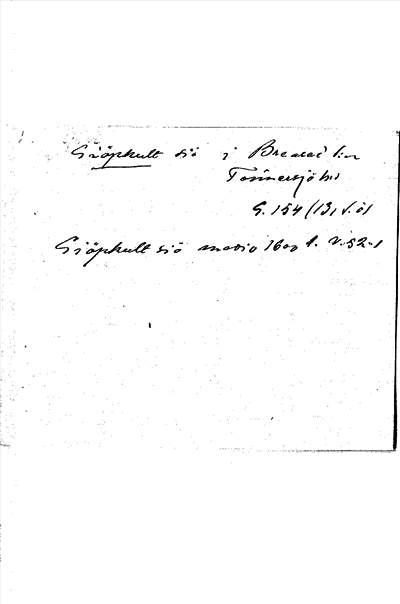 Siöpkult siö i Breared s:n
Tönnersjö hd
G. 154 (13, 1. öl
Siöpkult siö medio 1600 t. V:52-1